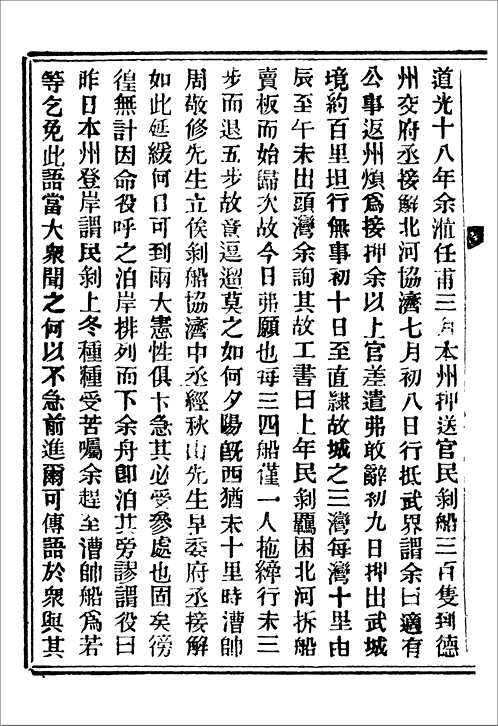 道光十八年余涖任甫三月本州押送官民剝船三百隻到德
州交府丞接解北河協濟七月初八日行抵武界謂余曰適有
公事返州煩爲接押余以上官差遣弗敢辭初九日押出武城
境約百里坦行無事初十日至直隸故城之三灣每灣十里由
辰至午未出頭灣余詢其故工書曰上年民剝羈困北河拆船
賣板而始歸次故今日弗願也每三四船僅一人拖縴行未三
步而退五步故意逗遛莫之如何夕陽旣西猶未十里時漕帥
周敬修先生立俟剝船協濟中丞經秋山先生早委府丞接解
如此延緩何日可到兩大憲性俱卞急其必受參處也固矣徬
徨無計因命役呼之泊岸排列而下余舟卽泊其旁謬謂役曰
昨日本州登岸謂民剝上冬種種受苦囑余趕至漕帥船爲若
等乞免此語當大衆聞之何以不急前進爾可傳語於衆與其